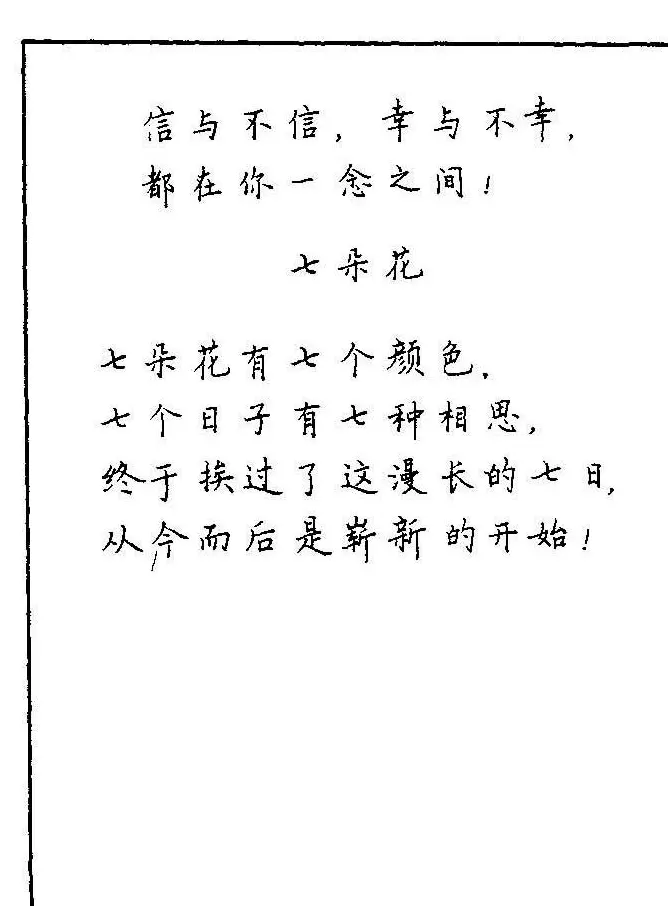 信与不信，幸与不幸，
都在你一念之间！
七朵花
七朵花有七个颜色，
七个日子有七种相思，
终于挨过了这漫长的七日，
从今而后是崭新的开始！